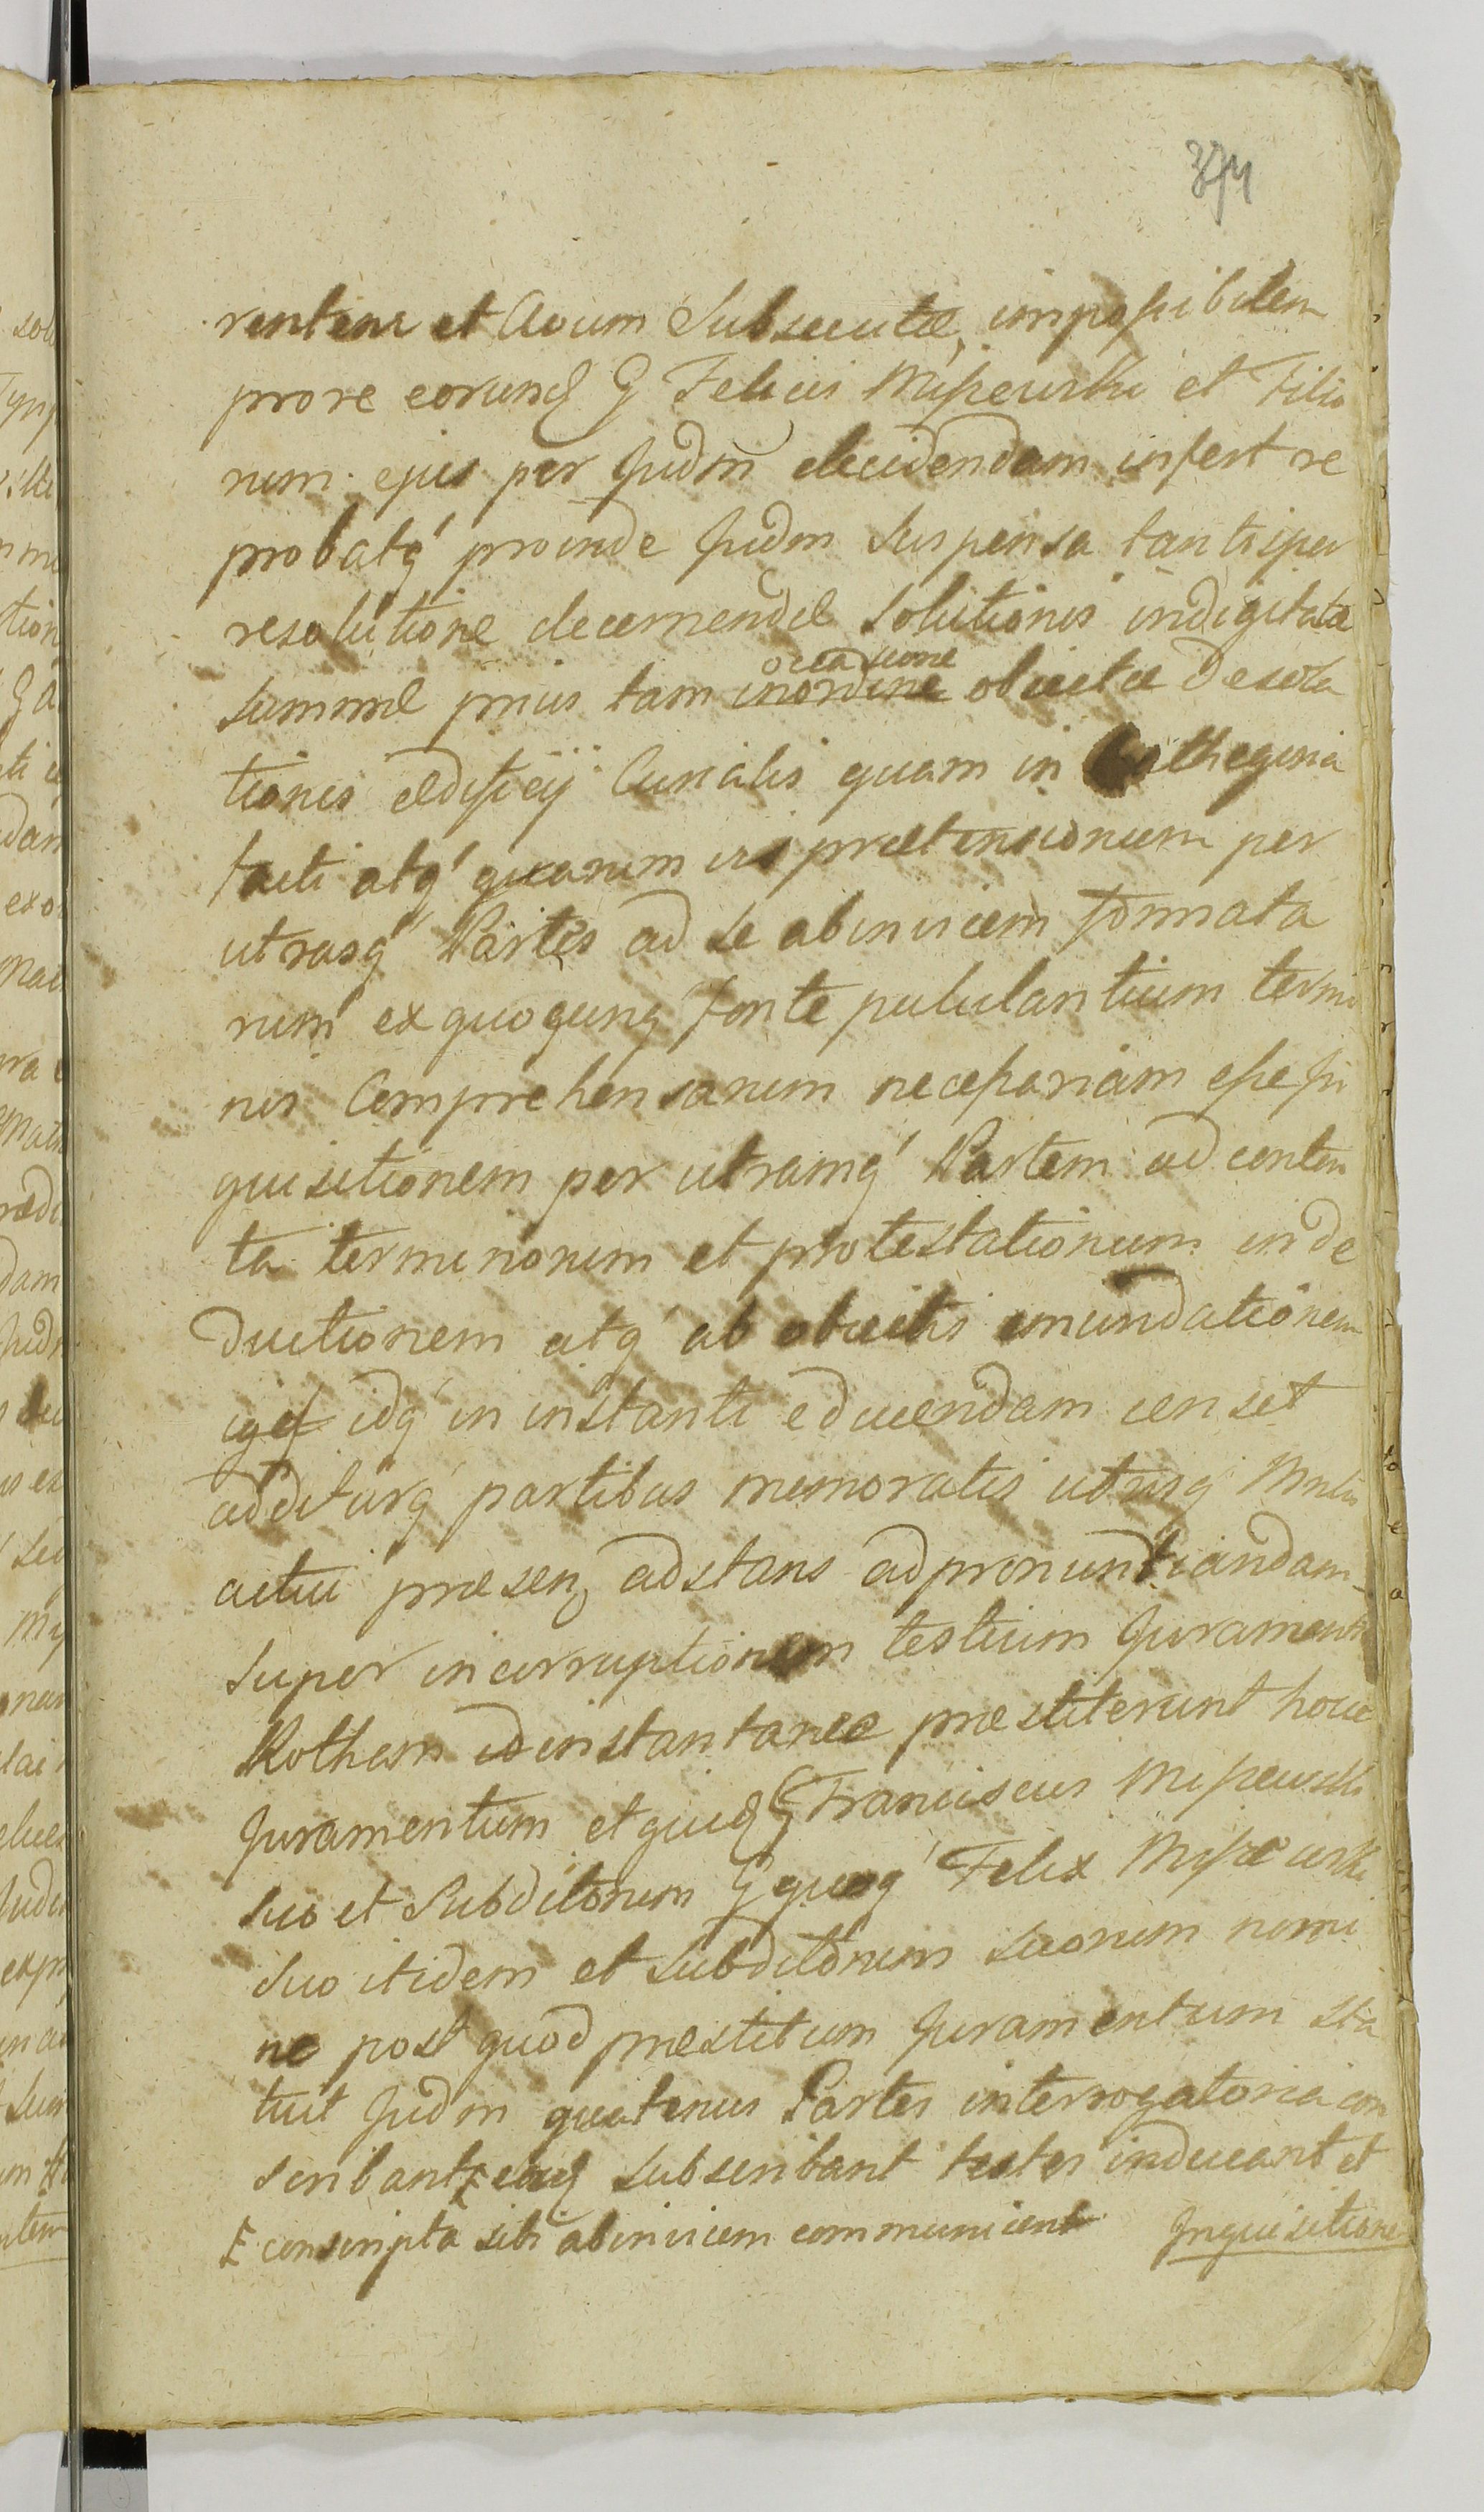 374
rentem et Avum Subsecutæ, impossibilem
pro re eorund G Felicis Miszewski et Filio
rum ejus per Judm decidendam infert re
probatq proinde Judm Suspensa tantisper
resolutione decernendæ Solutionis indigitatæ
occasione
Summæ prius tam inordine obiectæ Desola
tionis ædificij Curialis quam in Cathegoria
facti atq quarum vis prætensionum per
utrasq Partes ad se abinvicem formata
rum ex quocunq fonte pululantium termi
nis Comprehensarum necessariam esse In
quisitionem per utramq Partem ad conten
ta terminorum et protestationum inde
ductionem atq ab obiectis emundationem
idq in instanti educendam censet
additurq partibus memoratis utrisq Mnlis
actui præsen adstans ad pronuntiandam
super incorruptionem testium Juramenti
Rotham id instantanee præstiterunt hocce
Juramentum et quid G Franciscus Miszewski
suo et Subditorum G quoq Felix Miszewski
suo itidem et subditorum suorum nomi
ne post quod præstitum Juramentum sta
tuit Judm quatenus Partes interrogatoria con
scribant eaq subscribant testes inducant et
conscripta sibi abinvicem communicent Inquisitione